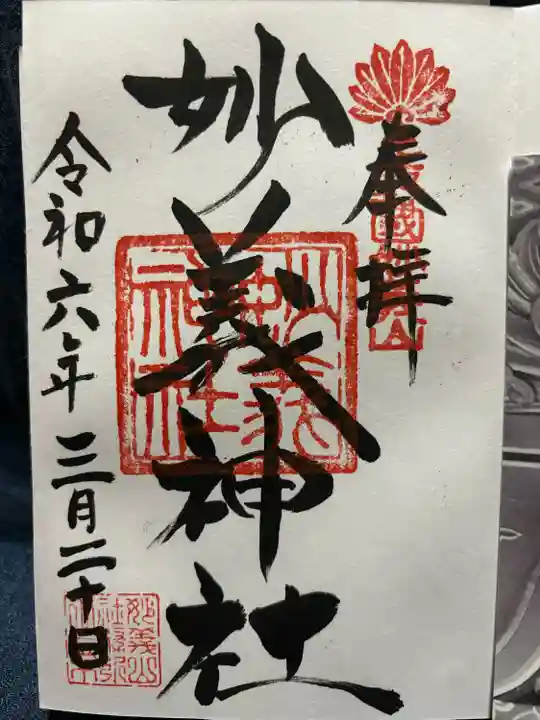 奉拝
妙義神社
令和六年三月二十日
妙義神社